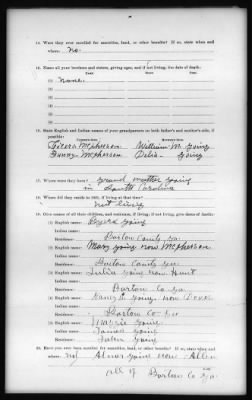 14. Were they ever enrolled for annuities, land, or other benefits? If so, state when and
where. No.
15. Name all your brothers and sisters, giving ages, and if not living, the date of death:
(1) None.
(2)
(3)
(4)
(5)
(6)
16. State English and Indian names of your grandparents on both father's and mother's side, if
possible:
Cicero McPherson William M Going
Fanny McPherson Delia Going
17. Where were they born? Grand mother Going
in South Carolina
18. Where did they reside in 1851, if living at that time?
not living
19. Give names of all their children, and residence, if living; if not living, give dates of death:
(1) English name: Going
Indian name:
Residence: Bartow County Ga.
(2) English name: Mary Going now McPherson
Indian name:
Residence: Bartow County Ga
(3) English name: Julia Going now Hunt
Indian name:
Residence: Bartow Co Ga
(4) English name: Nancy Going now
Indian name:
Residence: Bartow Co Ga
(5) English name: Going
Indian name: James Going
Residence: Going
20. Have you ever been enrolled for annuities, land, or other benefits? If so, state when and
where. No Going now Allen
all of Bartow Co Ga.